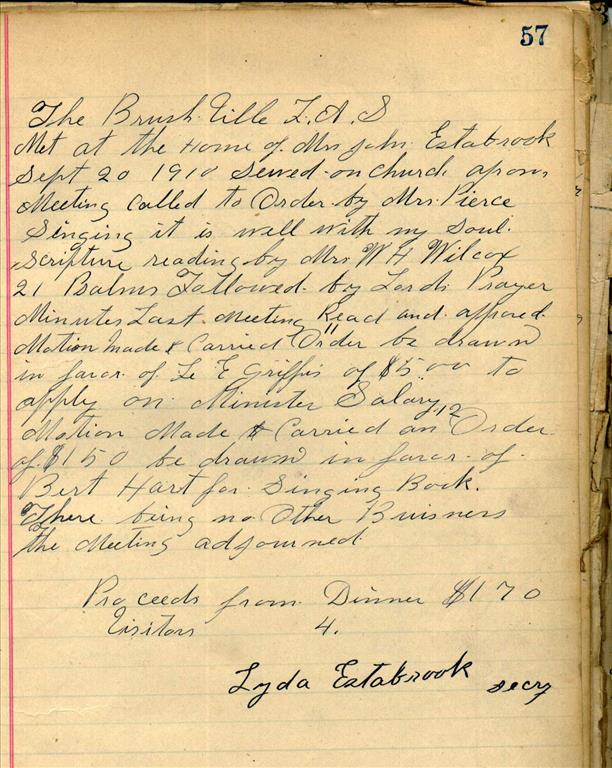 57
The Brush Ville L.A.S
Met at the Home of Mrs John Estabrook
Sept 20 1910 Sewed on church apons
Meeting Called to Order by Mrs. Pierce
Singing it is well with my Soul.
Scripture reading by Mrs W H Wilcox
21 Balms Followed by Lords Prayer
Minutes Last Meeting Read and appored
Motion Made & Carried Order 11 be drawn
in favor of L E Griffis of $5.00 to
apply on Minister Salary
Motion Made & Carried an Order 12
of $1 50 be drawn in favor of
Bert Hart for Singing Book.
There being no Other Buisness
the Meeting adjourned
Proceeds from Dinner $1 70
Visitors 4.
Lyda Estabrook secry